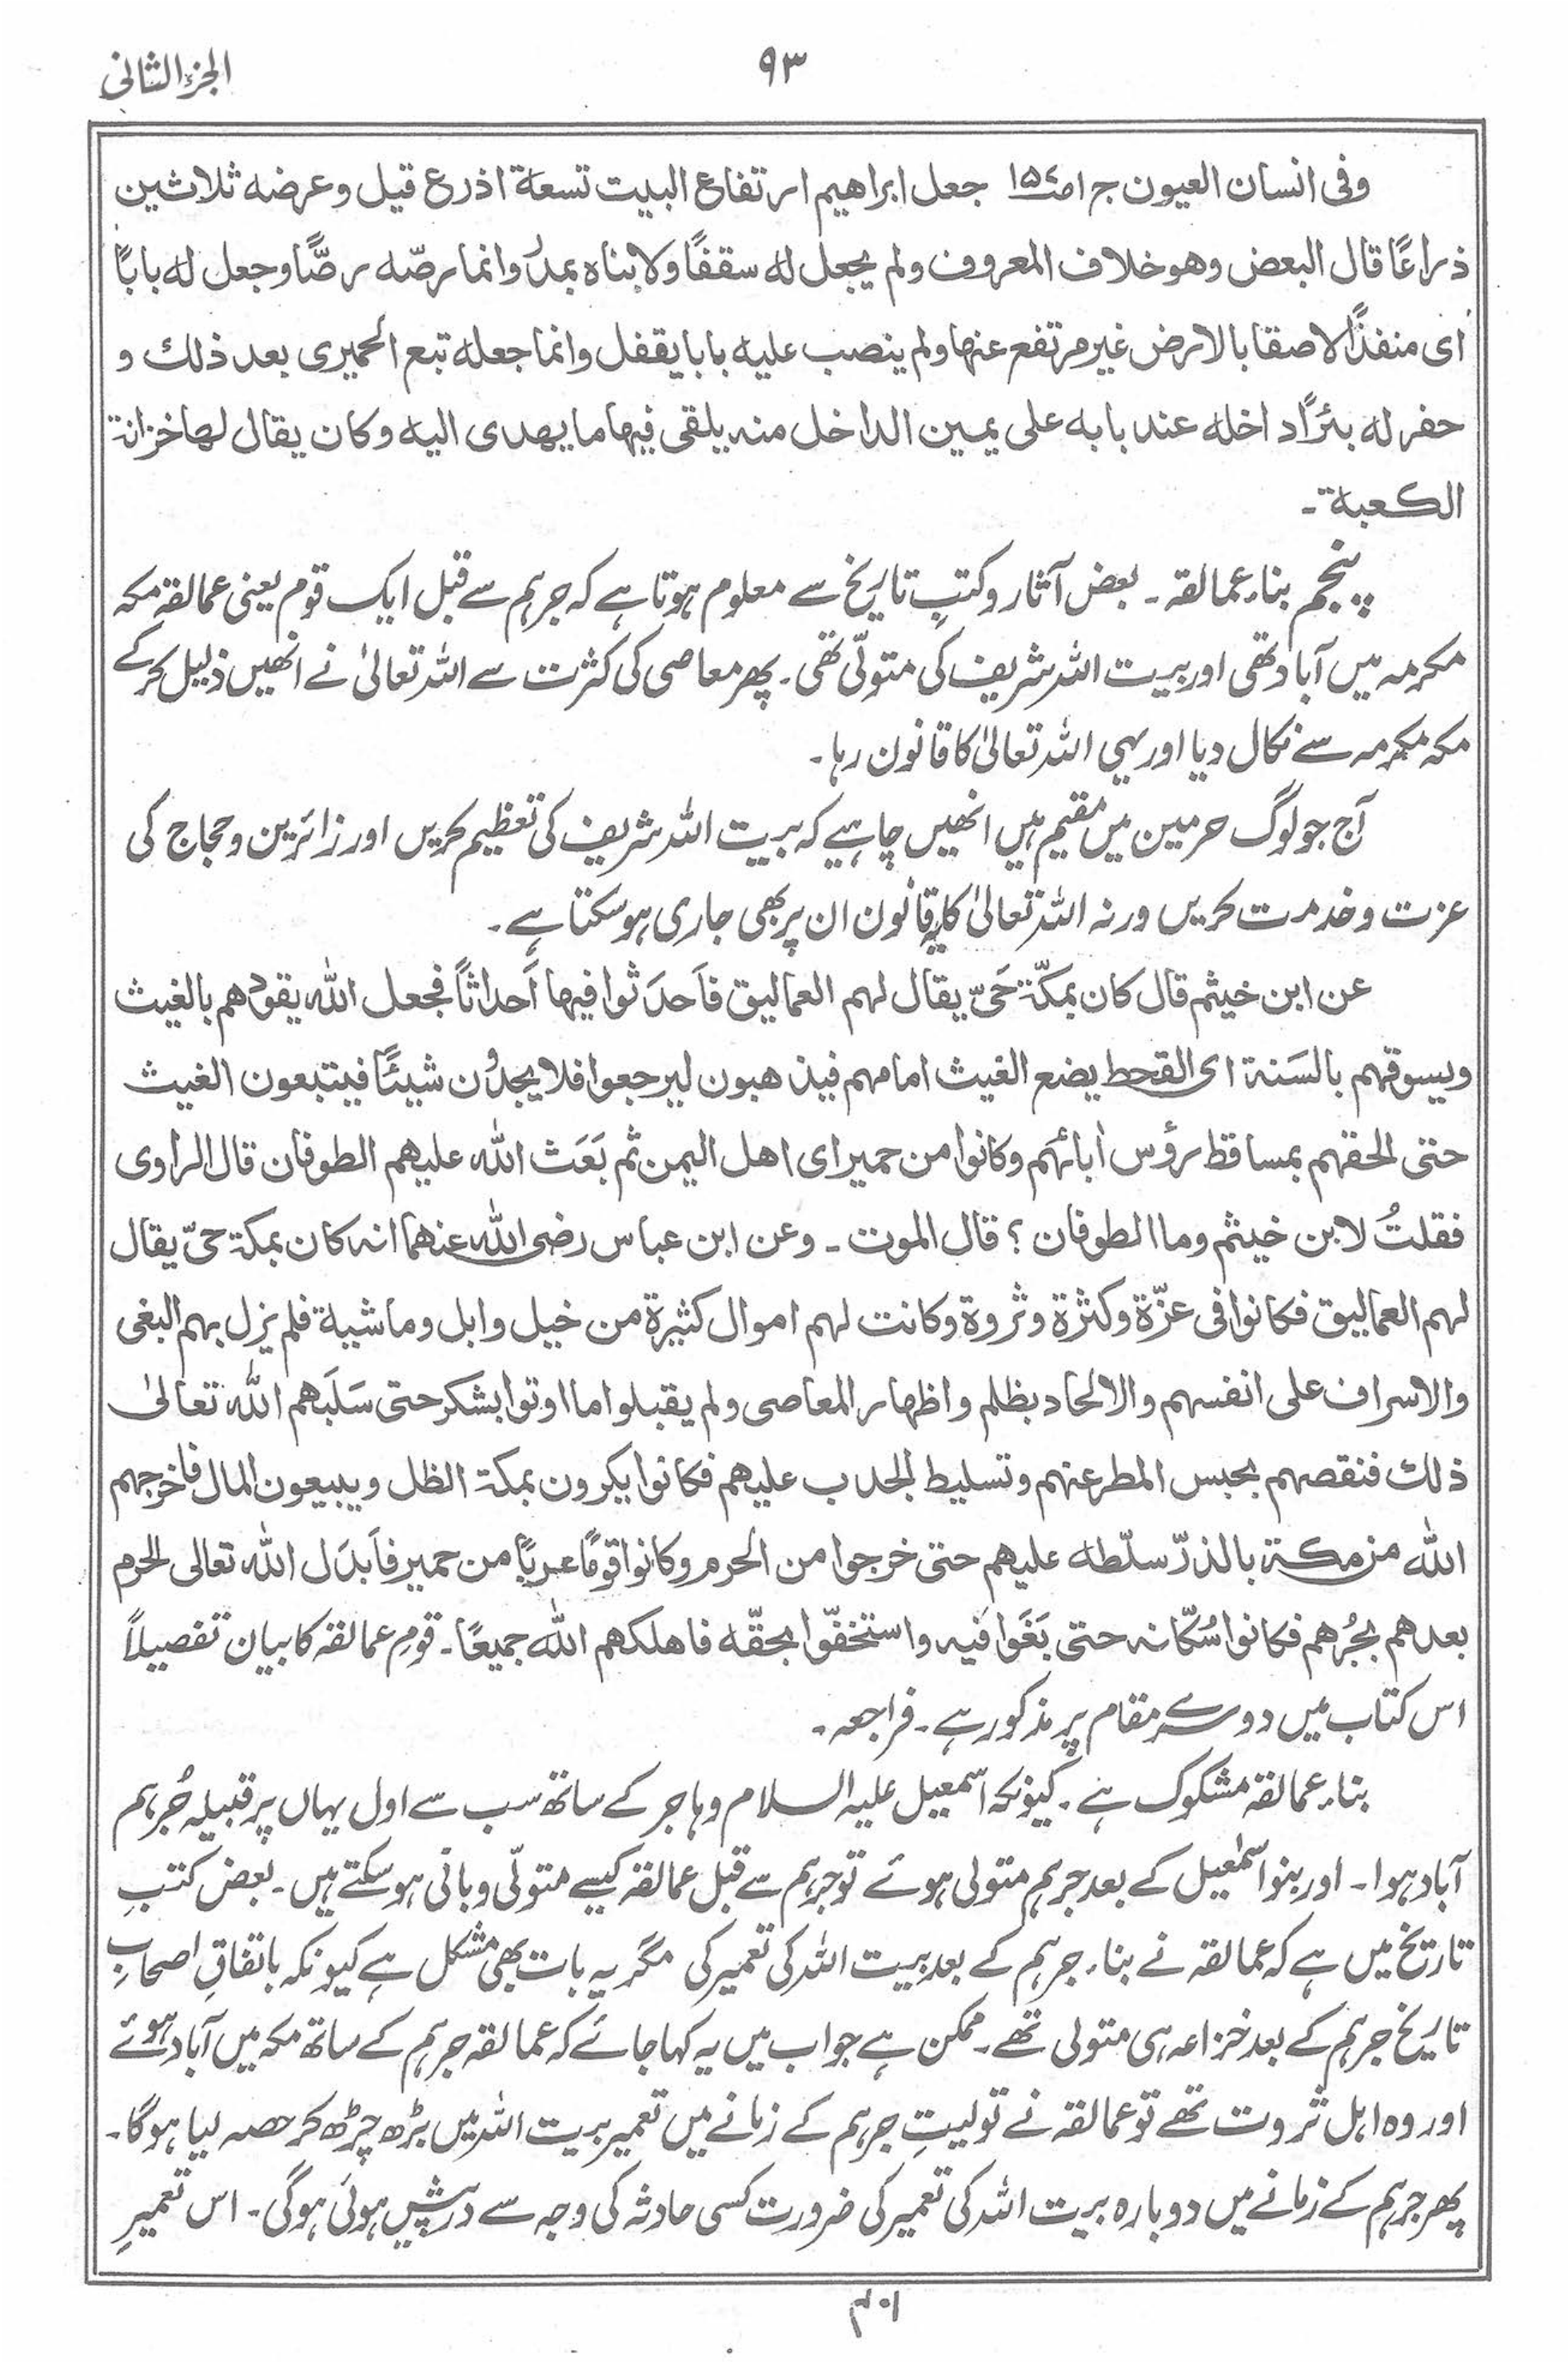 الجزء الثانی
۹۳
وفی انسان العیون ج۱ ص۱۵۶ جعل ابراهیم ارتفاع البیت تسعة اذرع قیل وعرضه ثلاثین
ذراعًا قال البعض وهو خلاف المعروف ولم یجعل له سقفًا ولا بناه بمدر وانما رصّه رصًّا وجعل له بابًا
ای منفذًا لاصقا بالارض غیر مرتفع عنها ولم ینصب علیه بابا یقفل وانما جعله تبع الحمیری بعد ذلك و
حفر له بئرًا داخله عند بابه علی یمین الداخل منه یلقی فیها ما یهدی الیه وکان یقال لها خزانة
الکعبة ۔
پنجم بناء عمالقہ ۔ بعض آثار و کتبِ تاریخ سے معلوم ہوتا ہے کہ جرہم سے قبل ایک قوم یعنی عمالقہ مکہ
مکرمہ میں آباد تھی اور بیت اللہ شریف کی متولّی تھی ۔ پھر معاصی کی کثرت سے اللہ تعالیٰ نے انھیں ذلیل کرکے
مکہ مکرمہ سے نکال دیا اور یہی اللہ تعالیٰ کا قانون رہا ۔
آج جو لوگ حرمین میں مقیم ہیں انھیں چاہیے کہ بیت اللہ شریف کی تعظیم کریں اور زائرین و حجاج کی
عزت و خدمت کریں ورنہ اللہ تعالیٰ کا یہ قانون ان پر بھی جاری ہوسکتا ہے ۔
عن ابن خیثم قال کان بمکّة حَیّ یقال لهم العمالیق فاَحدَثوا فیها اَحداثاً فجعل الله یقودهم بالغیث
ویسوقهم بالسَنة ای القحط یضع الغیث امامهم فیذهبون لیرجعوا فلا یجدُون شیئًا فیتبعون الغیث
حتی الحقهم بمساقط رؤس اٰبائهم وکانوا من حمیر ای اهل الیمن ثم بَعَث الله علیهم الطوفان قال الراوی
فقلتُ لابن خیثم وما الطوفان ؟ قال الموت ۔ وعن ابن عباس رضی الله عنهما انه کان بمکة حیّ یقال
لهم العمالیق فکانوا فی عزّة وکثرة وثروة وکانت لهم اموال کثیرة من خیل وابل وماشیة فلم یزل بهم البغی
والاسراف علی انفسهم والالحاد بظلم واظهار المعاصی ولم یقبلوا ما اوتوا بشکر حتی سَلَبَهم الله تعالیٰ
ذلك فنقصهم بحبس المطر عنهم وتسلیط الجدب علیهم فکانوا یکرون بمکة الظل ویبیعون المال فاخرجهم
الله من مکة بالذرّ سلّطه علیهم حتی خرجوا من الحرم وکانوا قومًا عربًا من حمیر فاَبدَل الله تعالی الحرم
بعدهم بجُرهم فکانوا سُکّانه حتی بَغَوا فیه واستخفّوا بحقّه فاهلکهم الله جمیعًا ۔ قومِ عمالقہ کا بیان تفصیلاً
اس کتاب میں دوسرے مقام پر مذکور ہے ۔ فراجعہ ۔
بناء عمالقہ مشکوک ہے ۔ کیونکہ اسمٰعیل علیہ السلام و ہاجر کے ساتھ سب سے اول یہاں پر قبیلہ جُرہم
آباد ہوا ۔ اور بنو اسمٰعیل کے بعد جرہم متولی ہوئے تو جرہم سے قبل عمالقہ کیسے متولّی و بانی ہوسکتے ہیں ۔ بعض کتبِ
تاریخ میں ہے کہ عمالقہ نے بناء جرہم کے بعد بیت اللہ کی تعمیر کی مگر یہ بات بھی مشکل ہے کیونکہ باتفاقِ اصحابِ
تاریخ جرہم کے بعد خزاعہ ہی متولی تھے ۔ ممکن ہے جواب میں یہ کہا جائے کہ عمالقہ جرہم کے ساتھ مکہ میں آباد ہوئے
اور وہ اہل ثروت تھے تو عمالقہ نے تولیتِ جرہم کے زمانے میں تعمیر بیت اللہ میں بڑھ چڑھ کر حصہ لیا ہوگا ۔
پھر جرہم کے زمانے میں دوبارہ بیت اللہ کی تعمیر کی ضرورت کسی حادثہ کی وجہ سے درپیش ہوئی ہوگی ۔ اس تعمیرِ